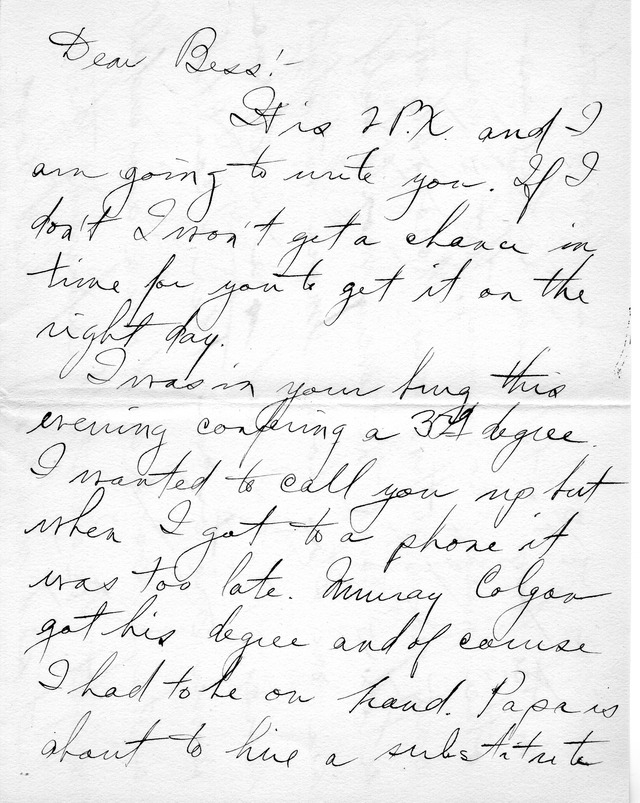 Dear Bess:-
It is 2 P.X. and I
am going to write you. If I
don't I won't get a chance in
time for you to get it on the
right day.
I was in your burg this
evening confering a 3rd degree.
I wanted to call you up but
when I got to a phone it
was too late. Murray Colgan
got his degree and of course
I had to be on hand. Papa is
about to hire a substitute